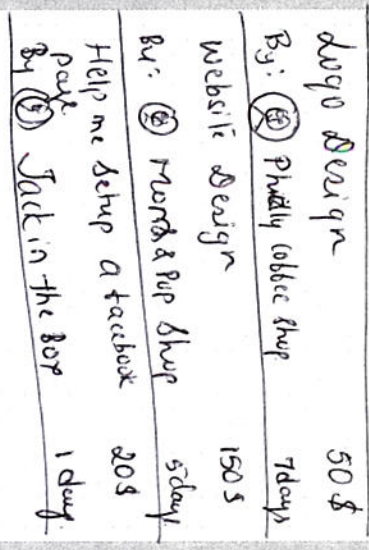 Logo Design 50$
By: Philly Cobbee Shop 7days
Website Design 150$
By: Mom's & Pop Shop 5days
Help me Setup a facebook 20$
page
By Jack in the Box 1 day.